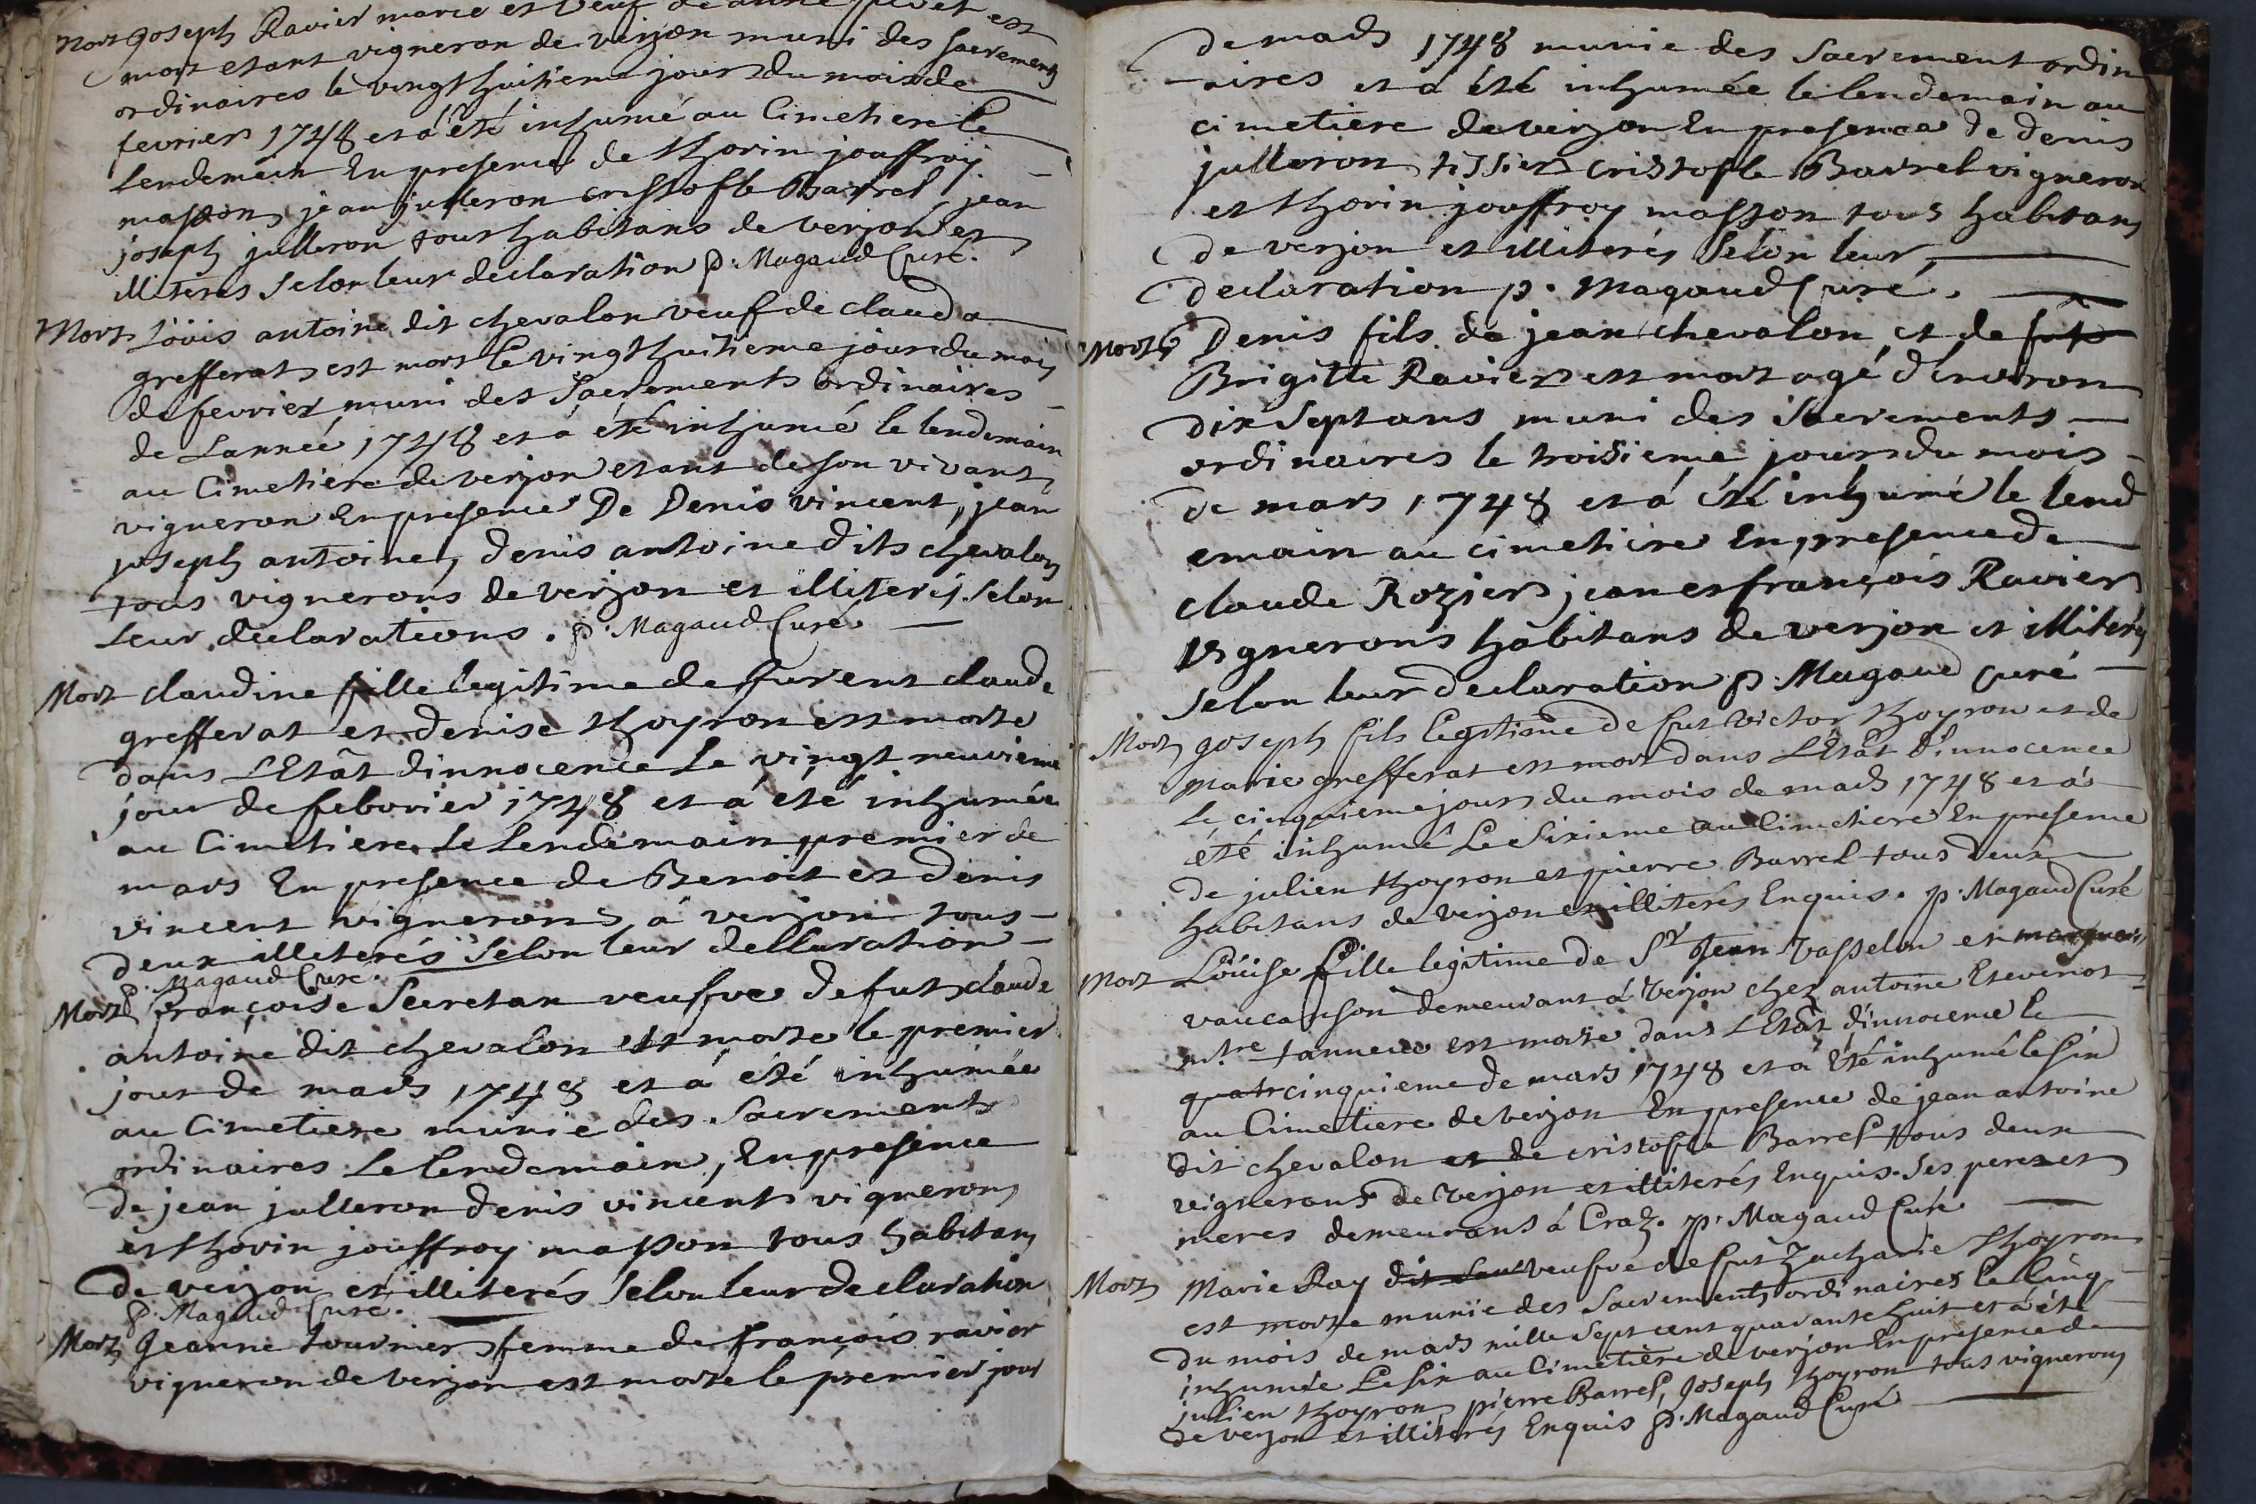 Mort Joseph Ravier marié et veuf de anne est
mort etant vigneron de verjon muni des sacrements
ordinaires le vingt huitieme jour du mois de
fevrier 1748 et a été inhumé au Cimetiere le
lendemain En presence de thorin jouffroy
masson, jean julleron cristofle Barrel jean
joseph julleron tous habitans de verjon et
illiterés selon leur declaration p. Magaud Curé.
Mort Löuis antoine dit chevalon veuf de clauda
grefferat est mort le vingt huitieme jour du mois
de fevrier muni des Sacrements ordinaires
de Lannée 1748 et a été inhumé le lendemain
au Cimetiere de verjon etant de son vivant
vigneron En presence De Denis vincent, jean
joseph antoine, denis antoine dits chevalon
tous vignerons de verjon et illiterés selon
Leur declarations. p. Magaud Curé
Mort claudine fille legitime de furent claude
grefferat et denise thoyron est morte
dans LEtât dinnocence Le vingt neuvieme
jour de febvrier 1748 et a été inhumée
au Cimetiere Le Lendemain premier de
mars En presence de Benoit et denis
vincent vignerons à verjon tous
deux illiterés Selon leur decllaration
p. Magaud Curé.
Mort françoise Secretan veufve de fut claude
antoine dit chevalon est morte le premier
jour de mars 1748 et a été inhumée
au Cimetiere munie des Sacrements
ordinaires Le lendemain, En presence
de jean julleron denis vincent vignerons
et thorin jouffroy masson tous habitans
de verjon et illiterés Selon leur declaration
p. Magaud Curé.
Mort Jeanne tournier femme de françois ravier
vigneron de verjon est morte le premier jour
de mars 1748 munie des Sacrement ordin
-aires et a été inhumée le lendemain au
cimetiere de verjon En presence de denis
julleron tissier cristofle Barrel vigneron
et thorin jouffroy masson tous habitans
de verjon et illiterés Selon leur
declaration p. Magaud Curé.
Mort Denis fils de jean chevalon et de fut
Brigitte Ravier est mort agé d'environ
dix Sept ans muni des Sacrements
ordinaires le troisieme jour du mois
de mars 1748 et a été inhumé le lend
emain au cimetiere En presence de
claude Rozier, jean et françois Ravier
vignerons habitans de verjon et illiterés
Selon leur declaration p. Magaud curé
Mort Joseph fils legitime de fut victor thoyron et de
marie grefferat est mort dans LEtât d'innocence
le cinquieme jour du mois de mars 1748 et a
été inhumé Le Sixieme au Cimetiere En presence
de julien thoyron et pierre Barrel tous deux
habitans de verjon et illiterés Enquis. p. Magaud Curé
Mort Löüise fille legitime de Sr Jean Vasselon et
vaucanson demeurant à verjon chez antoine Etevenot
mtre tanneur est morte dans LEtât d'innocence le
quatrcinquieme de mars 1748 et a été inhumé le Six
au Cimetiere de verjon En presence de jean antoine
dit chevalon et de cristofle Barrel tous deux
vignerons de verjon et illiterés Enquis. Ses peres et
meres demeurans à Craz. p. Magaud Curé.
Mort Marie Ray veufve de fut Zacharie thoyron
est morte munie des Sacrements ordinaires Le Cinq
du mois de mars mille Sept cent quarante huit et a été
inhumée Le Six au Cimetiere de verjon En presence de
julien thoyron pierre Barrel, joseph thoyron tous vignerons
de verjon et illiterés Enquis p. Magaud Curé